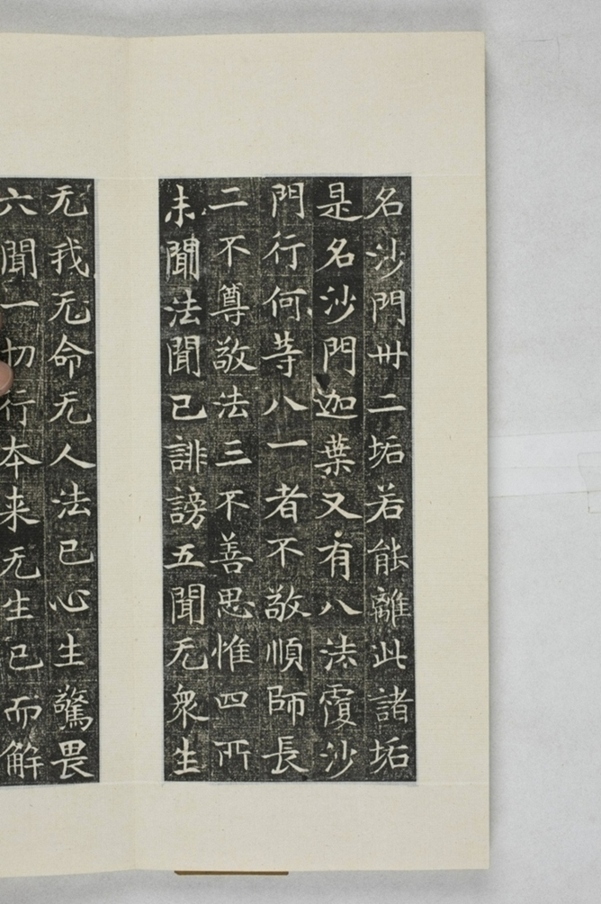 名沙門卅二垢若能離此諸垢
是名沙門迦葉又有八法覆沙
門行何等八一者不敬順師長
二不尊敬法三不善思惟四所
未聞法聞已誹謗五聞无衆生
无我无命无人法已心生驚畏
六聞一切行本来无生已而解